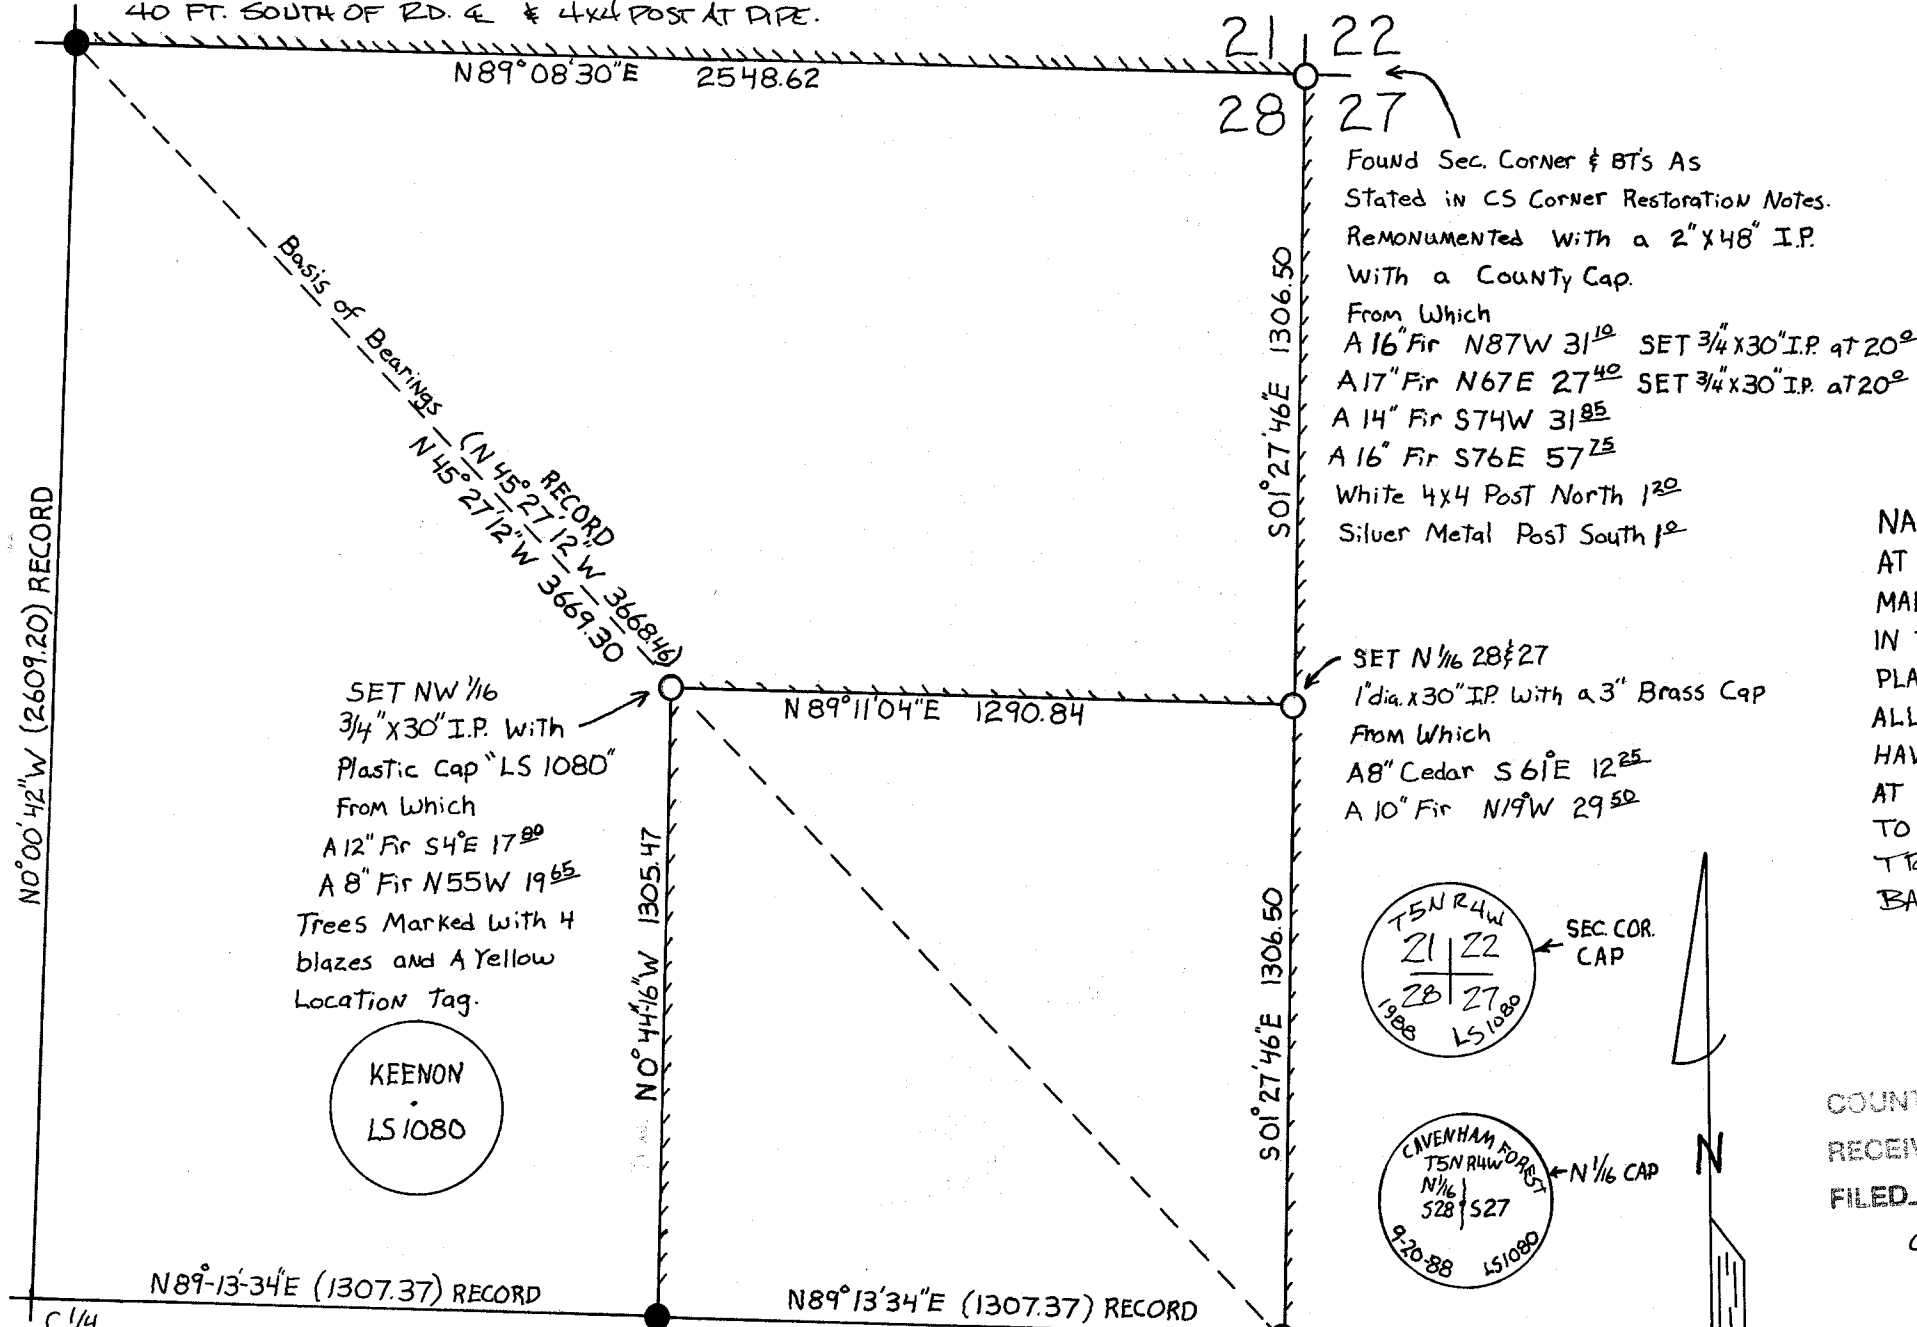 40 FT. SOUTH OF RD. ℄ & 4x4 POST AT PIPE.
21 22
28 27
N89°08'30"E 2548.62
Found Sec. Corner & BT's As
Stated in CS Corner Restoration Notes.
Remonumented With a 2"X48" I.P.
With a County Cap.
From Which
A 16" Fir N87W 31 10 SET 3/4"X30" I.P. at 20 0
A 17" Fir N67E 27 40 SET 3/4"X30" I.P. at 20 0
A 14" Fir S74W 31 85
A 16" Fir S76E 57 75
White 4x4 Post North 1 20
Silver Metal Post South 1 0
S01°27'46"E 1306.50
Basis of Bearings
RECORD
(N45°27'12"W 3668.46)
N45°27'12"W 3669.30
N0°00'42"W (2609.20) RECORD
SET NW 1/16
3/4"X30" I.P. With
Plastic Cap "LS 1080"
From Which
A 12" Fir S4°E 17 80
A 8" Fir N55W 19 65
Trees Marked With 4
blazes and A Yellow
Location Tag.
KEENON
LS1080
N89°11'04"E 1290.84
SET N 1/16 28&27
1"dia. x 30" I.P. With a 3" Brass Cap
From Which
A 8" Cedar S61°E 12 25
A 10" Fir N19°W 29 50
N0°44'-16"W 1305.47
S01°27'46"E 1306.50
T5N R4W
21 22
28 27
1988 LS1080
SEC. COR.
CAP
CAVENHAM FOREST
T5N R4W
N1/16
S28 S27
9-20-88 LS1080
N 1/16 CAP
N
NA
AT
MA
IN
PLA
ALL
HAV
AT
TO
BA
COUN
RECEIV
FILED
N89°-13'-34"E (1307.37) RECORD
N89°13'34"E (1307.37) RECORD
C 1/4